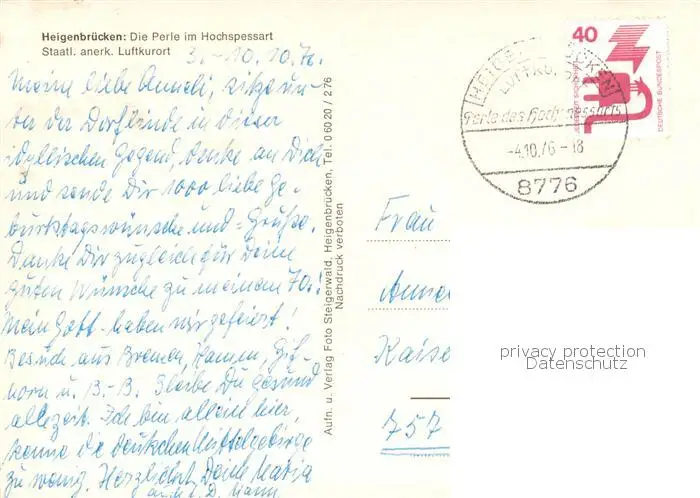 Heigenbrücken: Die Perle im Hochspessart
Staatl. anerk. Luftkurort
3.-10.10.76
Meine liebe Anneli, sitze un-
ter der Dorflinde in dieser
idyllischen Gegend, denke an Dich
und sende Dir 1000 liebe Ge-
burtstagswünsche und -Grüße.
Danke Dir zugleich für Deine
guten Wünsche zu meinem 70.!
Mein Gott - haben wir gefeiert!
Besuch aus Bremen, Hamm, Gif-
horn u. B.-B. Bleibe Du gesund
allezeit. Ich bin allein hier,
kenne die deutschen Mittelgebirge
zu wenig. Herzlichst Deine Maria
Aufn. u. Verlag Foto Steigerwald, Heigenbrücken, Tel. 06020 / 276
Nachdruck verboten
40
JEDERZEIT SICHERHEIT
DEUTSCHE BUNDESPOST
HEIGENBRÜCKEN
LUFTKURORT
Perle des Hochspessarts
-4.10.76-18
8776
Frau
Kaise
757
privacy protection
Datenschutz